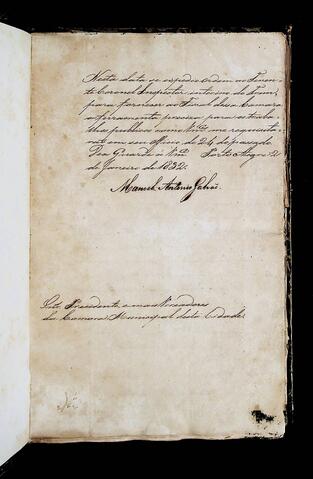 Nesta data se expedio ordem ao Tenen-
te Coronel Inspector interino do Trem,
para fornecer ao Fiscal dessa Camara
a ferramenta precisa para os traba-
lhos publicos como Vmces me requisita-
rão em seu Officio de 24 do passado
Deos Guarde a Vmces Porto Alegre 21
de Janeiro de 1832.
Manoel Antonio Galvão
Snrs. Presidente, e mais Vereadores
da Camara Municipal desta Cidade